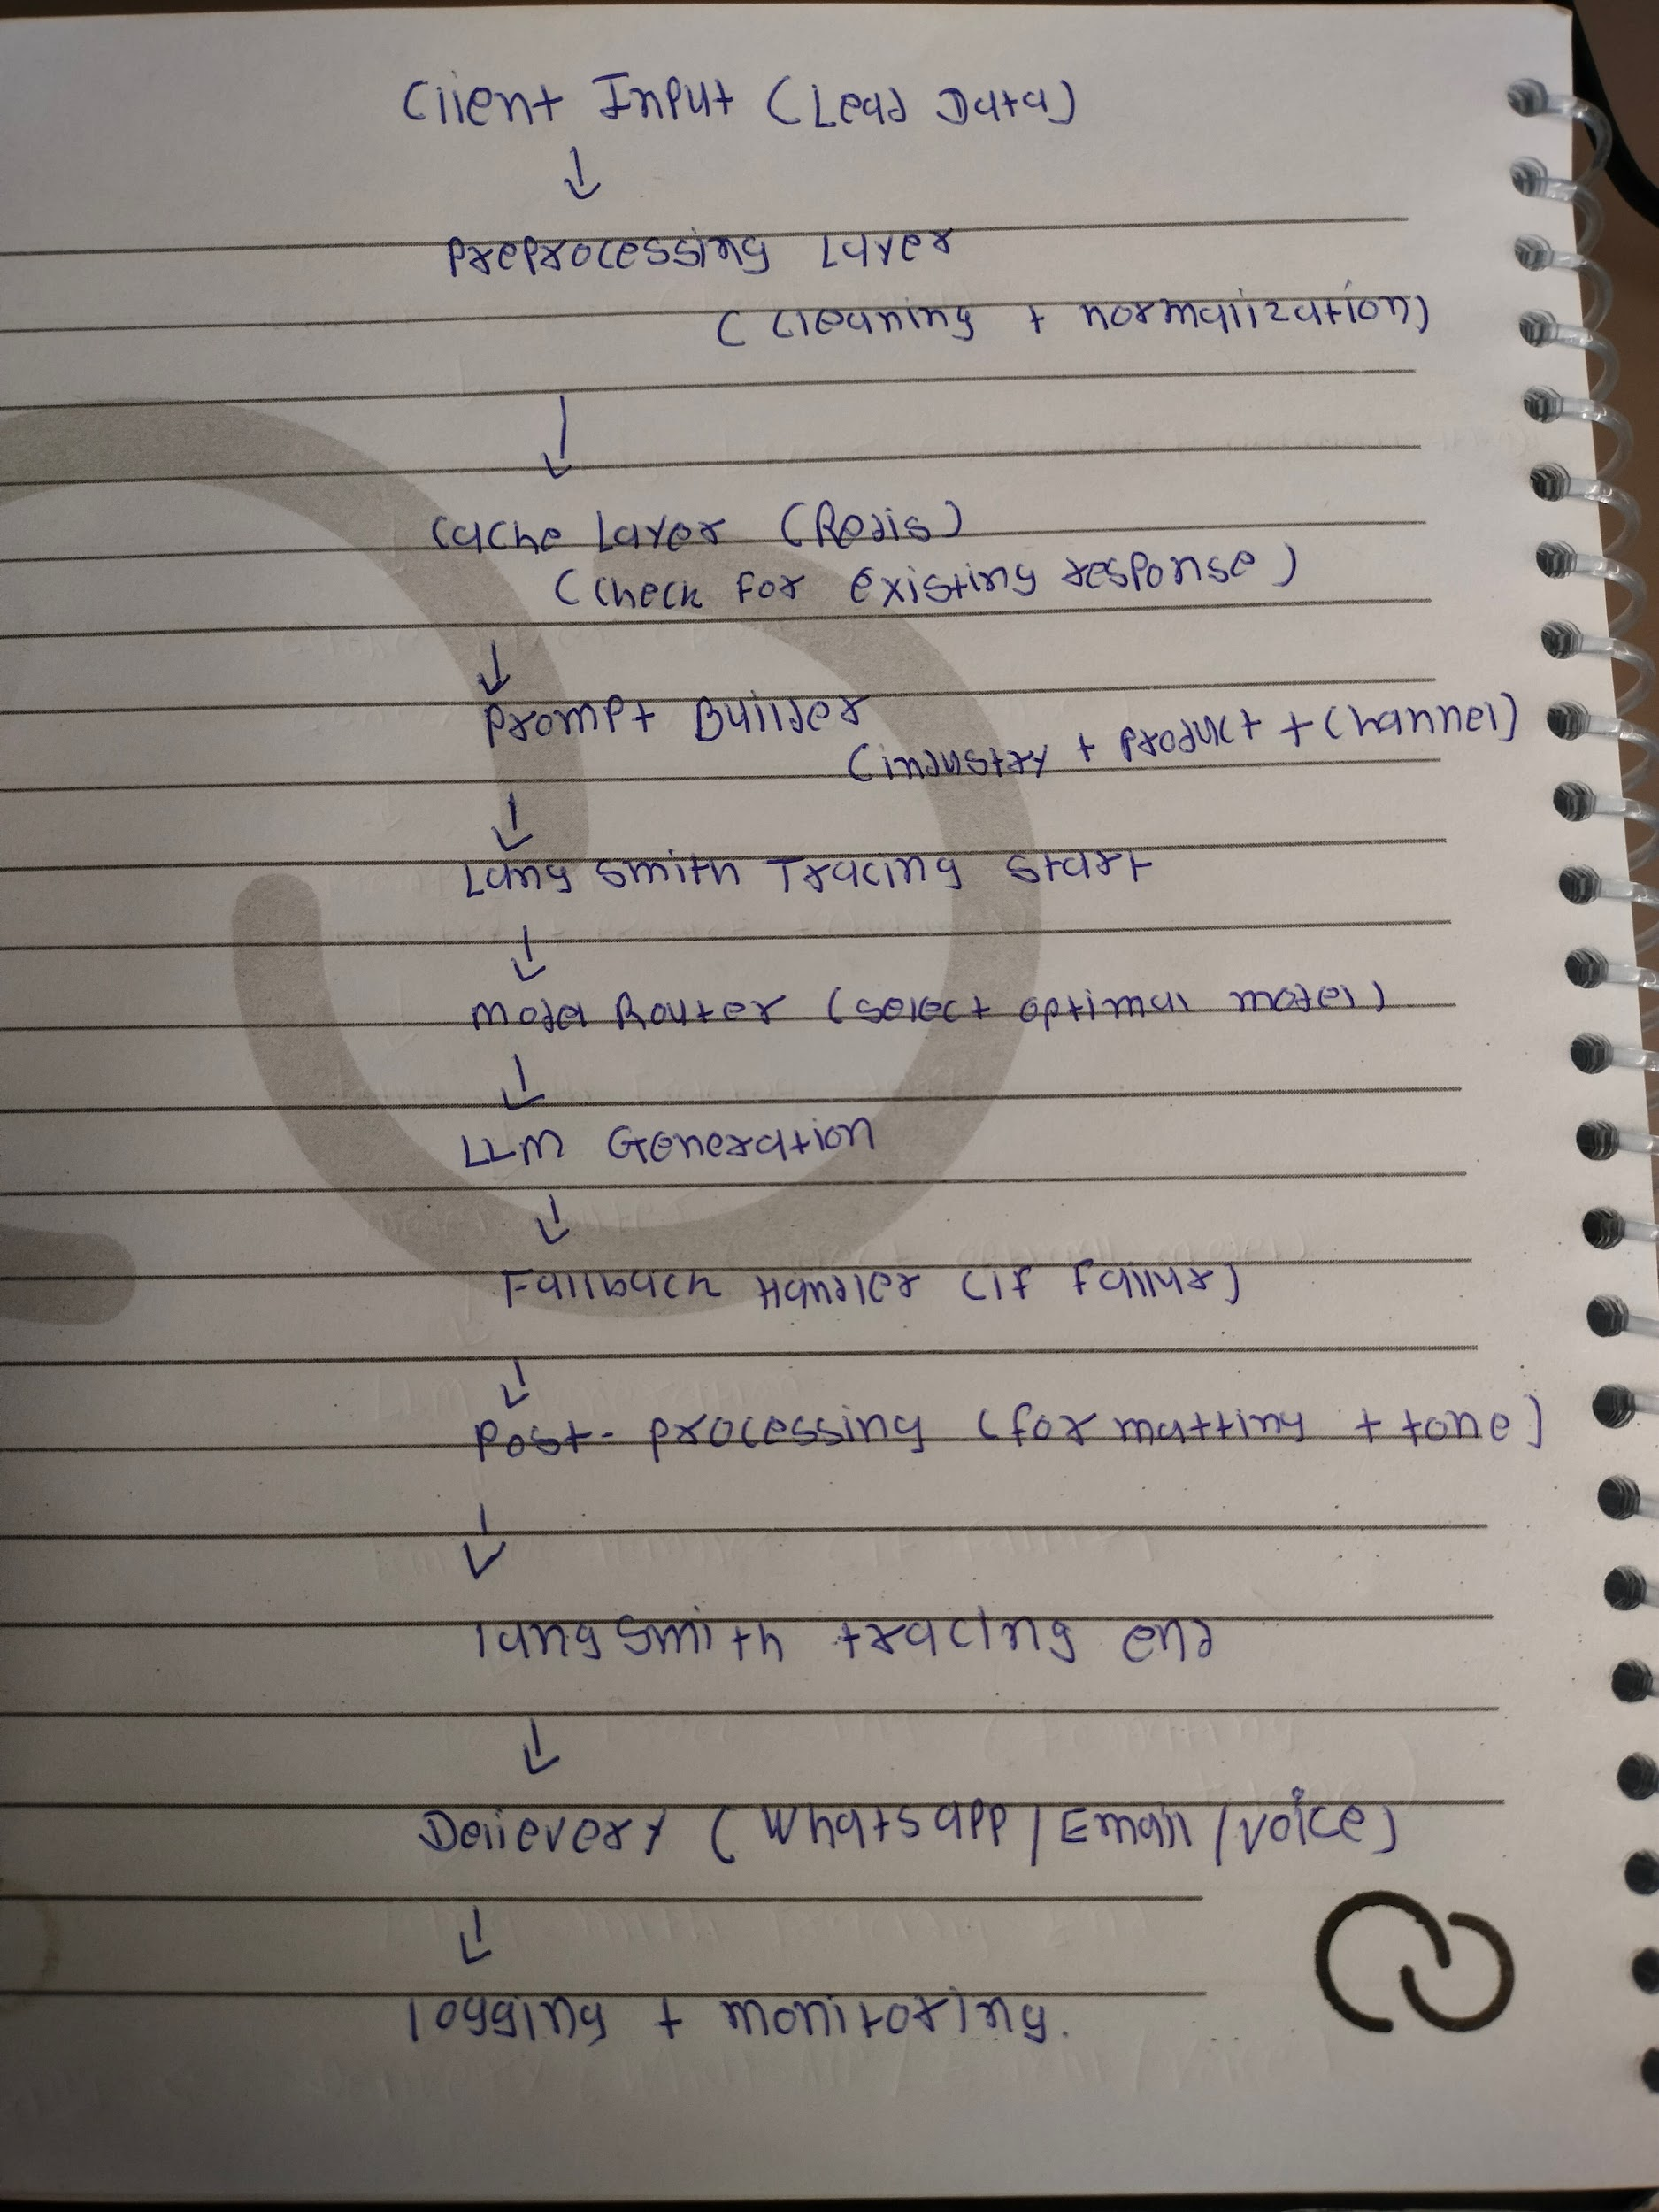 Client Input (Lead Data)
↓
Preprocessing Layer
(cleaning + normalization)
↓
Cache Layer (Redis)
(check for existing response)
↓
Prompt Builder
(industry + product + channel)
↓
Lang Smith Tracing Start
↓
Model Router (select optimal model)
↓
LLM Generation
↓
Fallback Handler (if failur)
↓
Post-processing (formatting + tone)
↓
lang Smith tracing end
↓
Delievery (Whatsapp/Email/voice)
↓
logging + monitoring.